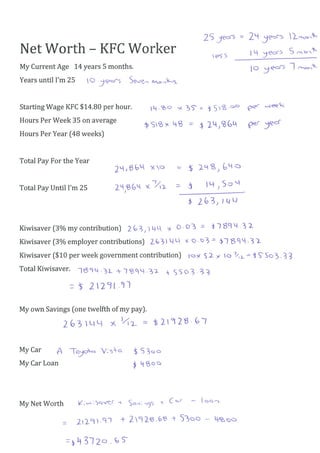 25 years = 24 years 12 month
Net Worth – KFC Worker
less 14 years 5 month
My Current Age 14 years 5 months.
10 years 7 month
Years until I'm 25 10 years Seven months
Starting Wage KFC $14.80 per hour. 14.80 x 35 = $518.00 per week
Hours Per Week 35 on average $518 x 48 = $24,864 per year
Hours Per Year (48 weeks)
Total Pay For the Year
24,864 x 10 = $ 248,640
Total Pay Until I'm 25 24,864 x 7/12 = $ 14,504
$ 263,144
Kiwisaver (3% my contribution) 263,144 x 0.03 = $7894.32
Kiwisaver (3% employer contributions) 263144 x 0.03 = $7894.32
Kiwisaver ($10 per week government contribution) 10x52 x 10 7/12 = $5503.33
Total Kiwisaver. 7894.32 + 7894.32 + 5503.33
= $ 21291.97
My own Savings (one twelfth of my pay).
263144 x 1/12 = $21928.67
My Car A Toyota Vista $5300
My Car Loan $4800
My Net Worth Kiwisaver + Savings + Car - loan
= 21291.97 + 21928.68 + 5300 - 4800
= $43720.65